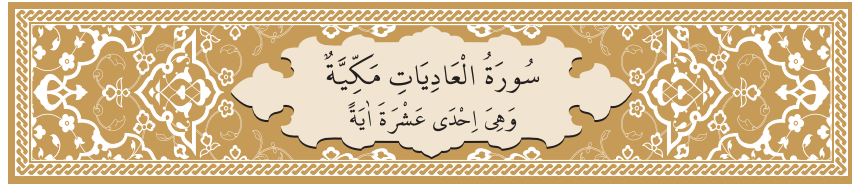 سُورَةُ الْعَادِيَاتِ مَكِّيَّةٌ
وَهِىَ اِحْدٰى عَشْرَةَ اٰيَةً